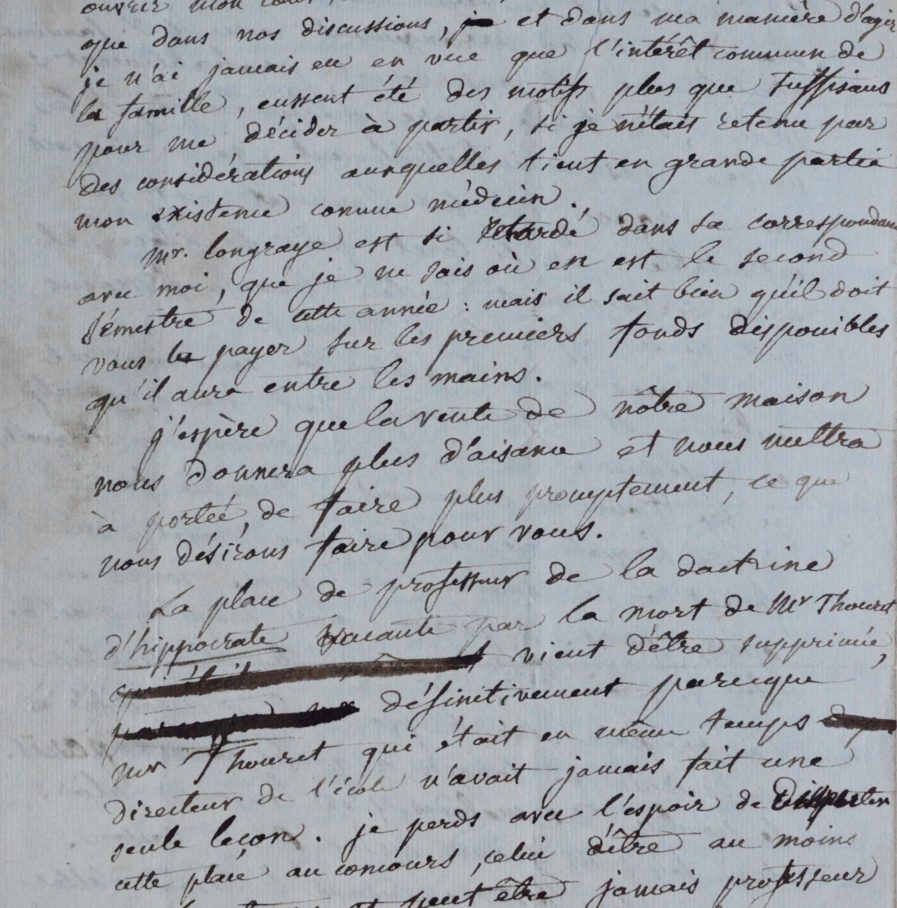 ouvrir mon
que dans nos discussions, et dans ma manière d'agir
je n'ai jamais eu en vue que l'intérêt commun de
la famille, eussent été des motifs plus que suffisans
pour me décider à partir, si je n'étais retenu par
des considérations auxquelles tient en grande partie
mon existence comme médecin.
Mr. Longraye est si retardé dans sa correspondance
avec moi, que je ne sais où en est le second
sémestre de cette année : mais il sait bien qu'il doit
vous le payer sur les premiers fonds disponibles
qu'il aura entre les mains.
j'espère que la vente de nôtre maison
nous donnera plus d'aisance et nous mettra
à portée, de faire plus promptement, ce que
nous désirons faire pour vous.
La place de professeur de la doctrine
d'hippocrate vacante par la mort de Mr Thouret
vient d'être supprimée,
définitivement parceque
mr Thouret qui était en même temps
directeur de l'école n'avait jamais fait une
seule leçon. je perds avec l'espoir de disputer
cette place au concours, celui d'être au moins
peut être jamais professeur